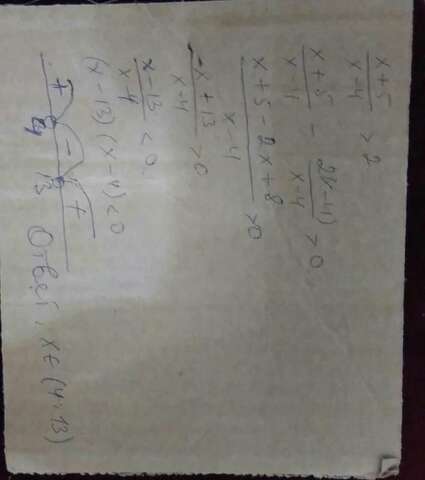 x+5/x-4 > 2
x+5/x-4 - 2(x-4)/x-4 > 0
x+5-2x+8/x-4 >0
-x+13/x-4 >0
x-13/x-4 <0.
(x-13)(x-4)<0
+ - +
4 13 Ответ, x∈(4;13)